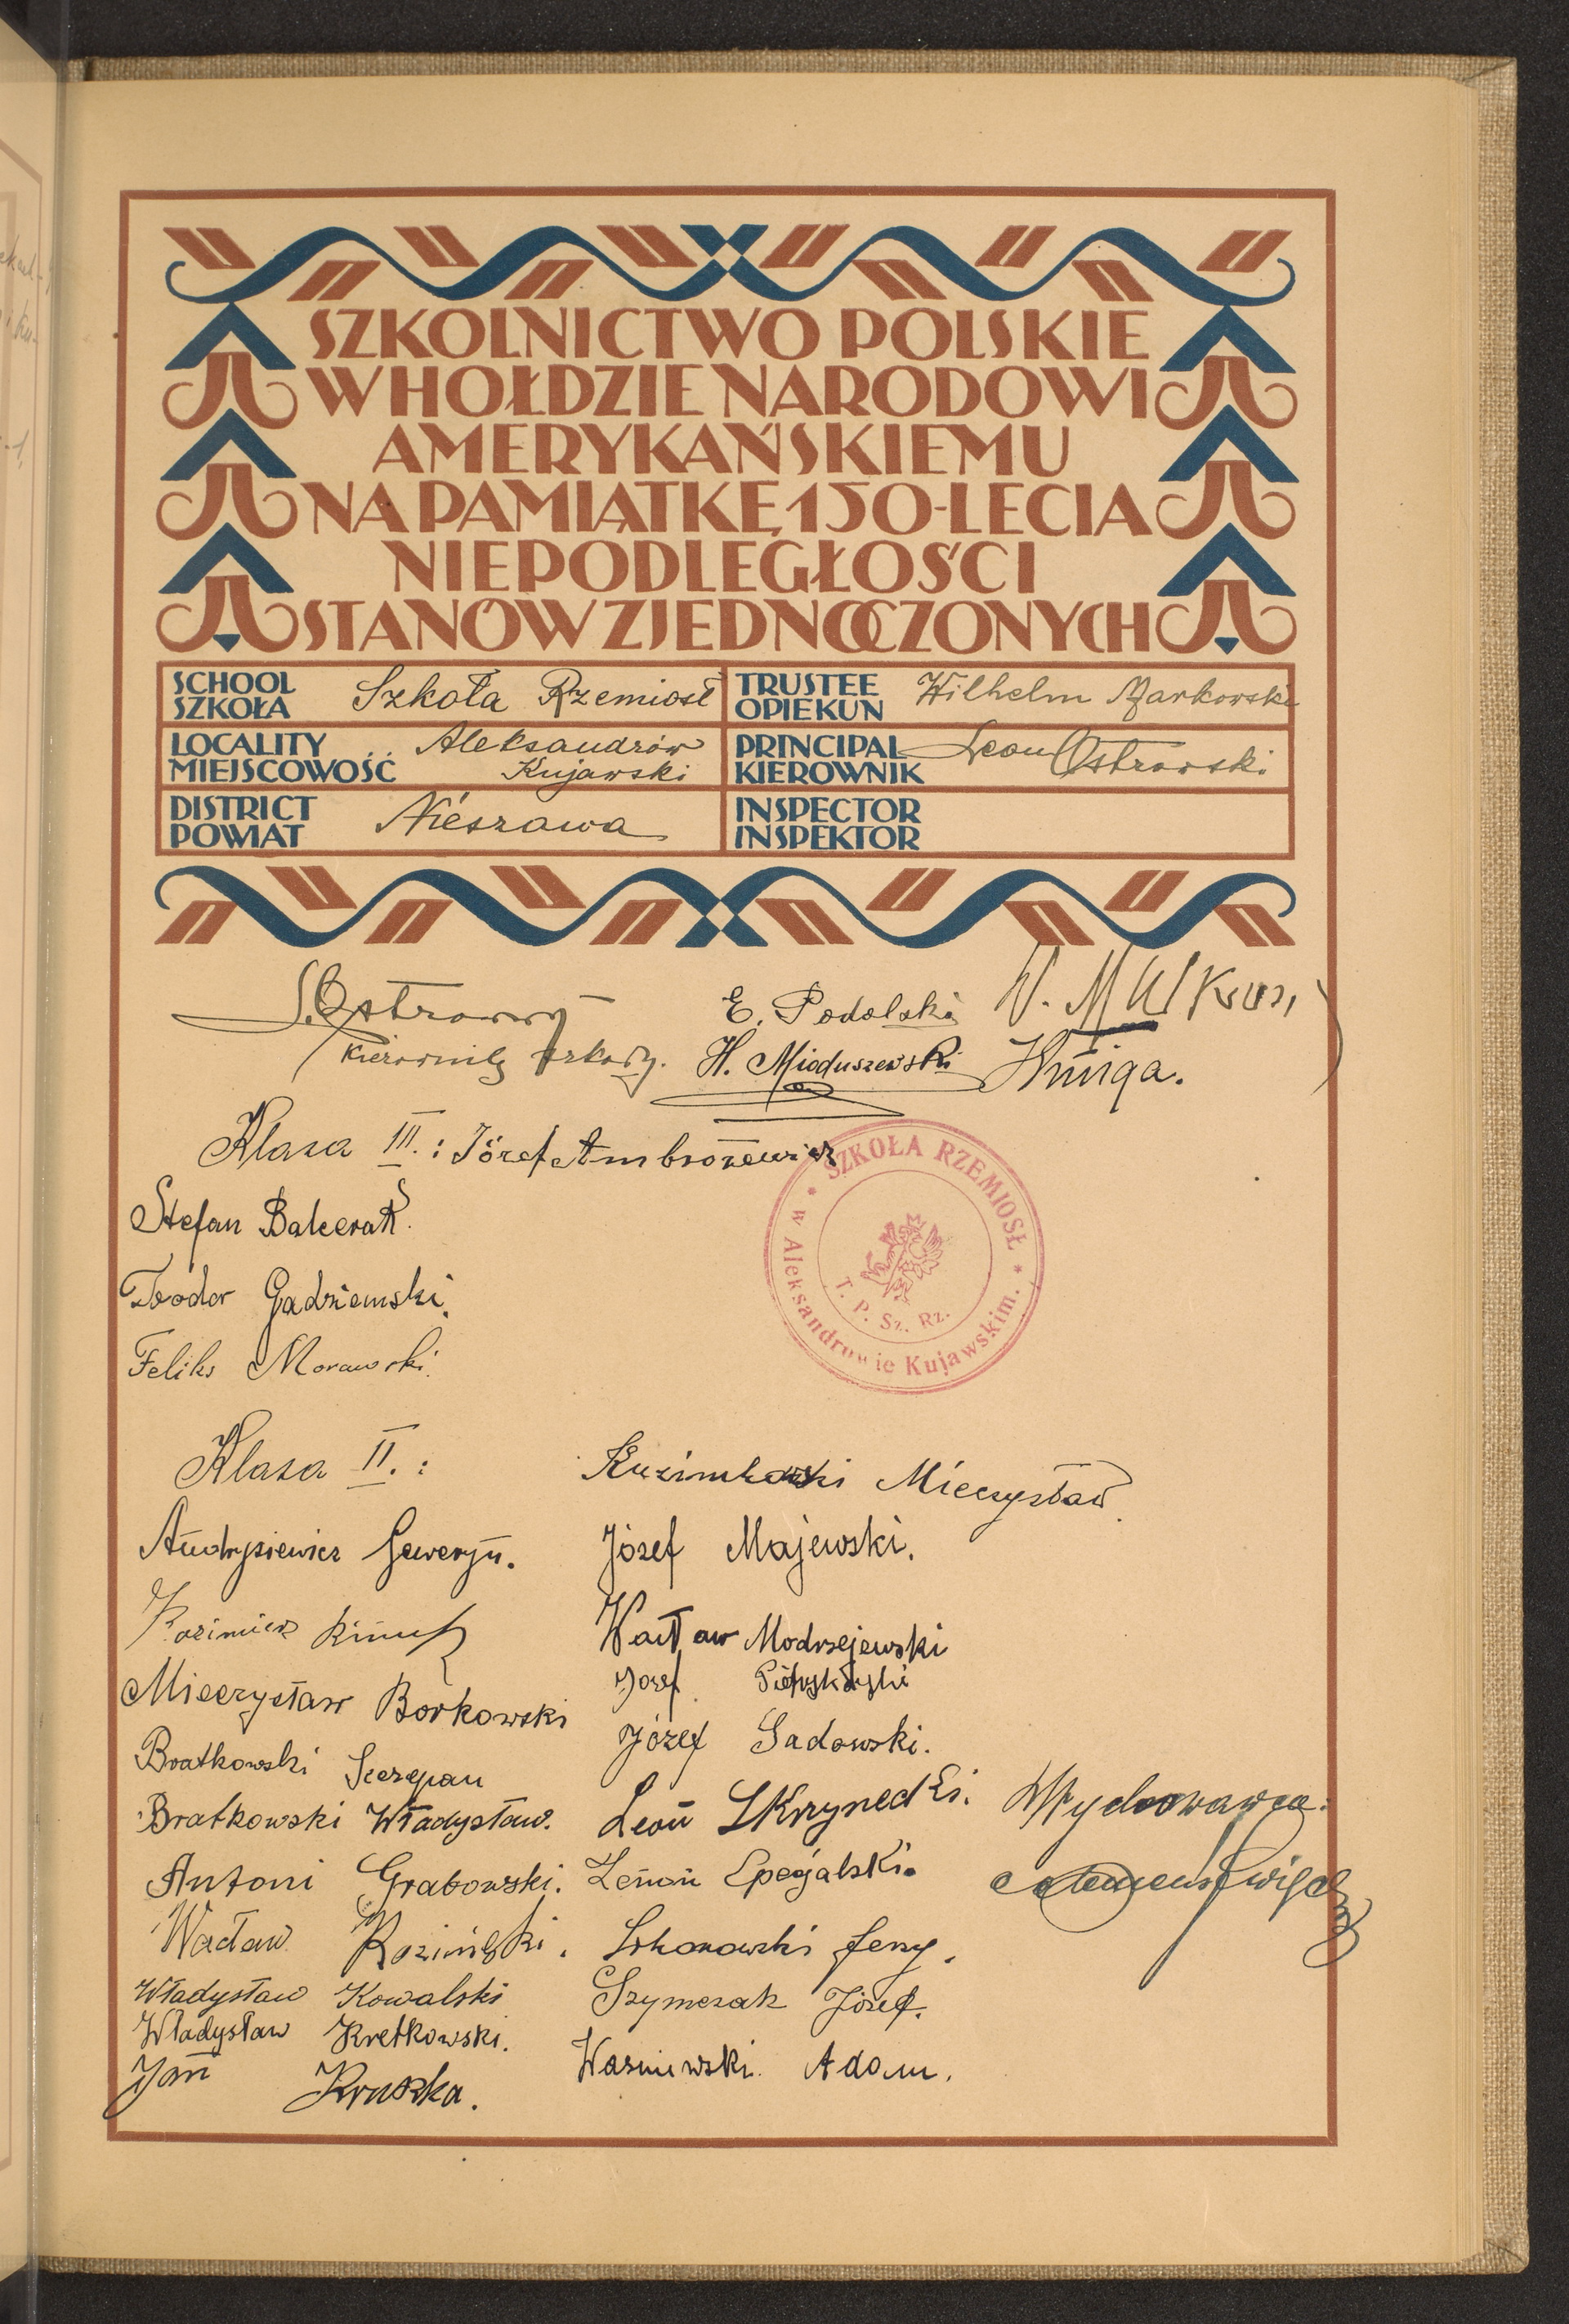 SZKOLNICTWO POLSKIE
W HOŁDZIE NARODOWI
AMERYKAŃSKIEMU
NA PAMIĄTKĘ 150-LECIA
NIEPODLEGŁOŚCI
STANÓW ZJEDNOCZONYCH
SCHOOL
SZKOŁA
Szkoła Rzemiosł
TRUSTEE
OPIEKUN
Wilhelm Markowski
LOCALITY
MIEJSCOWOŚĆ
Aleksandrów
Kujawski
PRINCIPAL
KIEROWNIK
Leon Ostrowski
DISTRICT
POWIAT
Nieszawa
INSPECTOR
INSPEKTOR
L. Ostrowski
Kierownik szkoły.
E. Podolski
H. Mioduszewski
Klasa III.: Józef Ambrożewicz
SZKOŁA RZEMIOSŁ
w Aleksandrowie Kujawskim.
T. P. Sz. Rz.
Stefan Balcerak.
Teodor Gadziemski.
Feliks Morawski.
Klasa II.:
Andrysiewicz Seweryn.
Kazimierz
Mieczysław Borkowski
Bratkowski Szczepan
Bratkowski Władysław.
Antoni Grabowski.
Wacław Koziński.
Władysław Kowalski
Władysław Kretkowski.
Jan Kruszka.
Mieczysław
Józef Majewski.
Wacław Modrzejewski
Józef
Józef Sadowski.
Leon Skrzynecki.
Zenon
Jerzy.
Szymczak Józef.
Waśniewski Adam.
Wychowawca: